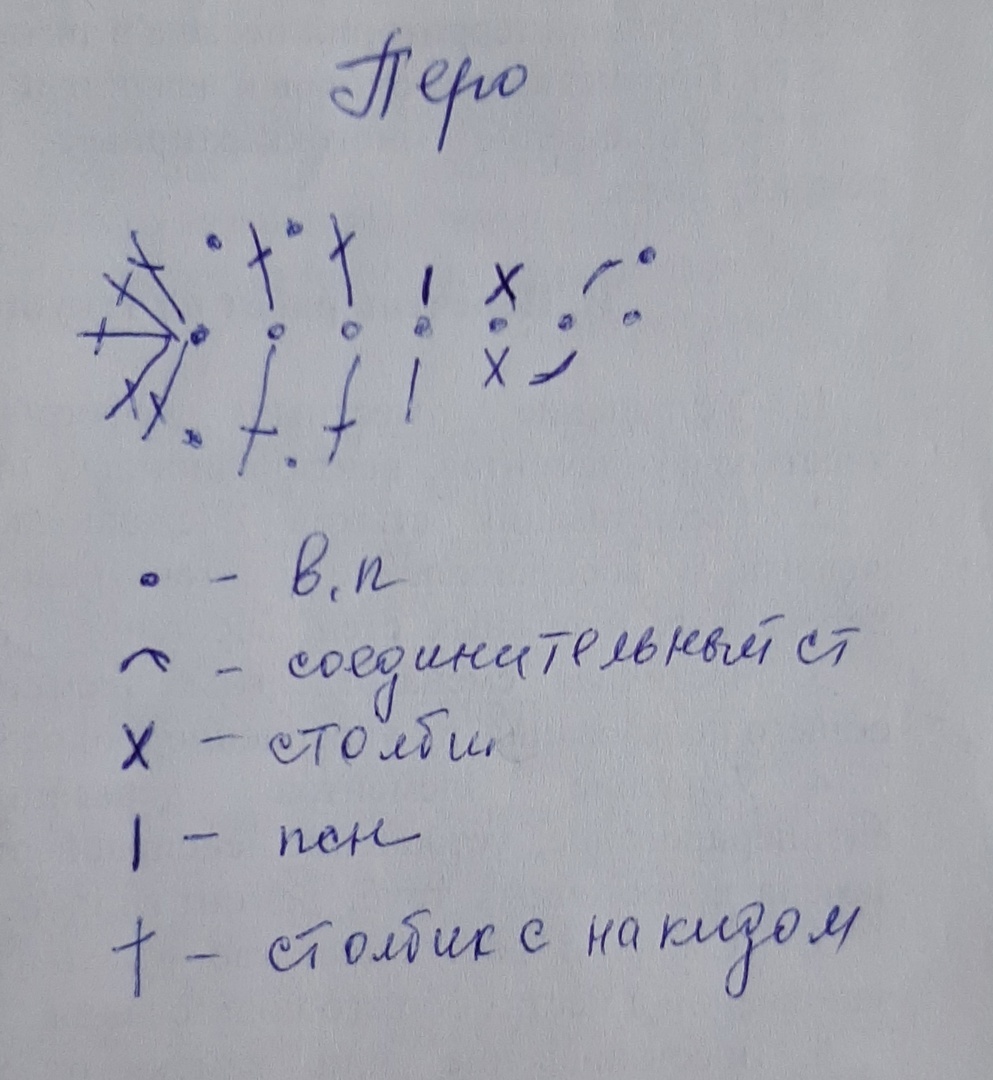 Перо
• - в.п
⌒ - соединительный ст
x - столбик
| - псн
† - столбик с накидом